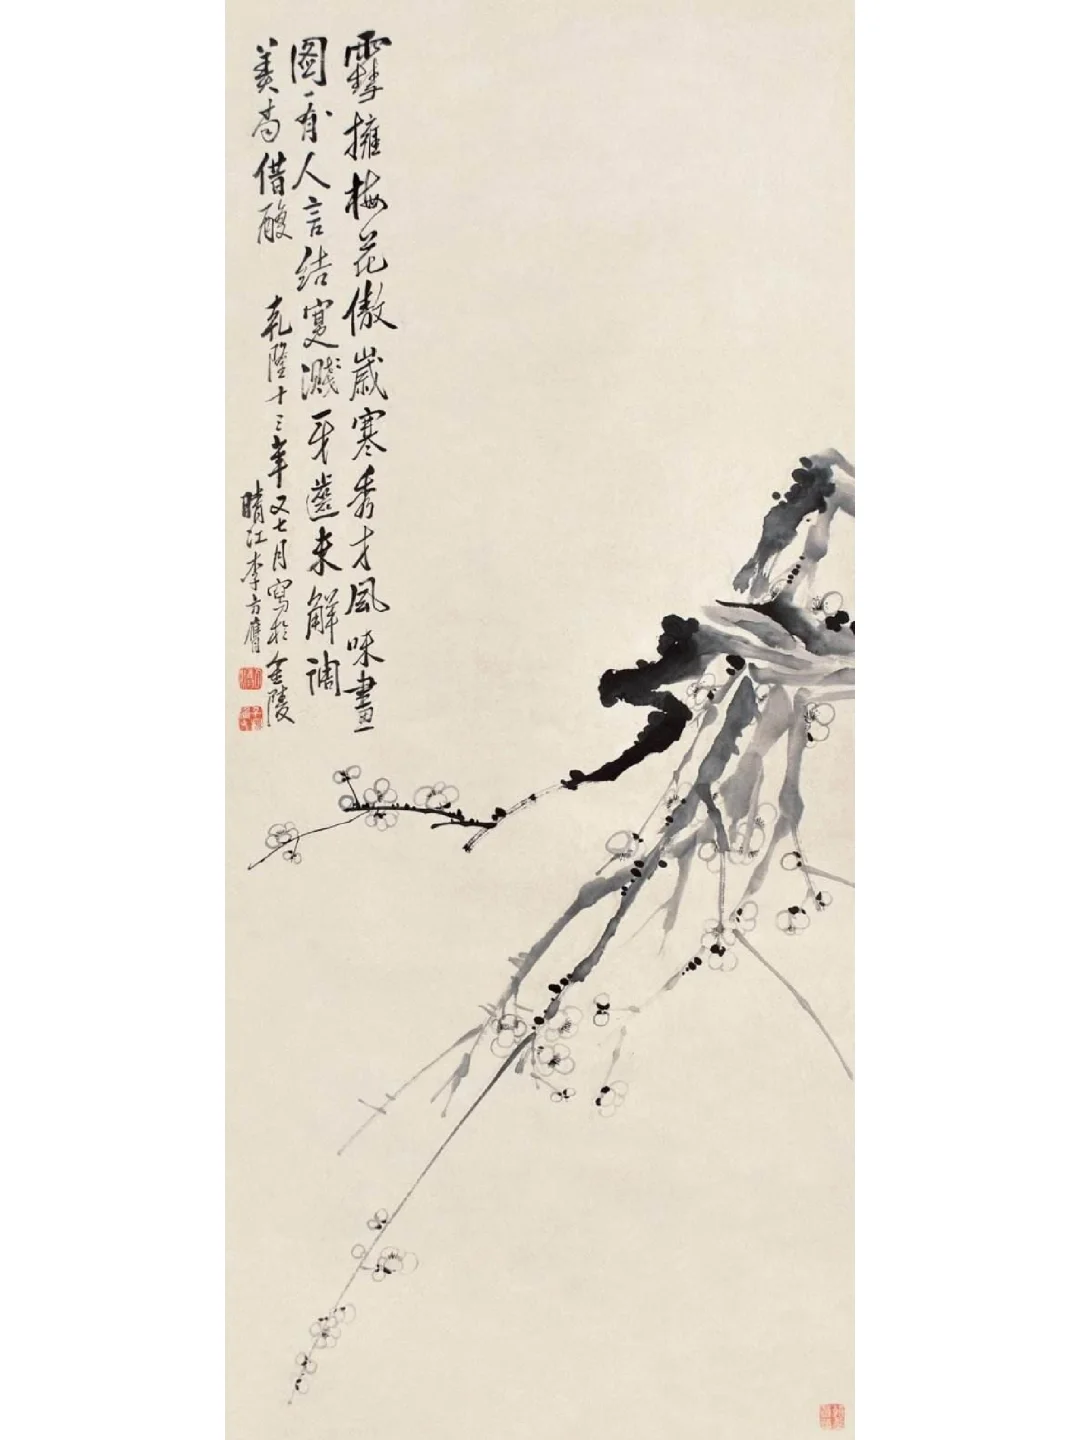 雪擁梅花傲歲寒秀才風味畫
圖看人言結實濺牙齒未解調
羹尚借酸 乾隆十三年又七月寫於金陵
晴江李方膺